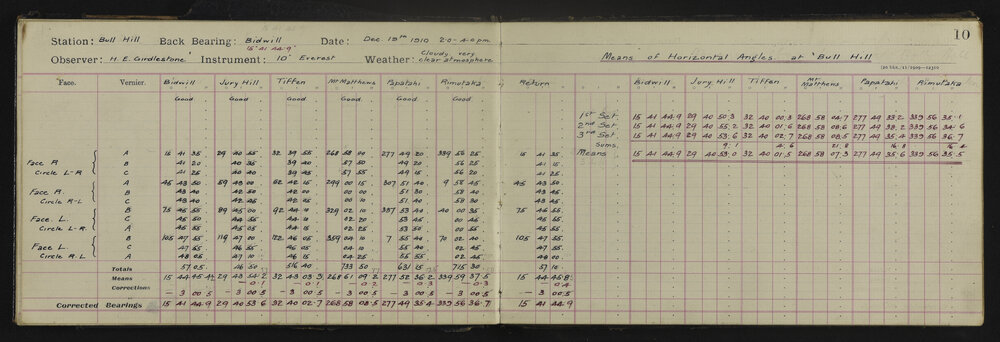 10
Station: Bull Hill Back Bearing: Bidwill Date: Dec 19th 1910 2.0-4.0pm
15° 41' 44.9"
Observer: H. E. Girdlestone Instrument: 10" Everest Weather: Cloudy, very clear atmosphere
Means of Horizontal Angles at "Bull Hill"
Face. Vernier. Bidwill Jory Hill Tiffen Mt Matthews Papatahi Rimutaka Return Bidwill Jory Hill Tiffen Mt Matthews Papatahi Rimutaka
Good Good Good Good Good Good
1st Set. 15 41 44.9 29 40 50.3 32 40 00.3 268 58 04.7 277 49 33.2 339 56 35.1
2nd Set. 15 41 44.9 29 40 55.2 32 40 01.6 268 58 08.6 277 49 38.2 339 56 34.6
3rd Set. 15 41 44.9 29 40 53.6 32 40 02.7 268 58 08.5 277 49 35.4 339 56 36.7
Sums. 9.1 4.6 21.8 16.8
Means 15 41 44.9 29 40 53.0 32 40 01.5 268 58 07.3 277 49 35.6 339 56 35.5
A 15 41 35 29 40 55 32 39 55 268 58 00 277 49 20 339 56 25 15 41 35
Face R B 41 20 40 35 39 40 57 50 49 20 56 25 41 15
Circle L-R C 41 25 40 40 39 45 57 55 49 15 56 20 41 25
A 45 43 50 59 43 00 62 42 15 299 00 15 307 51 40 9 58 45 45 43 50
Face R. B 43 40 42 50 42 00 00 00 51 30 58 40
Circle R-L C 43 40 42 45 42 05 00 10 51 40 58 30 43 45
B 75 45 55 89 45 00 92 44 329 02 10 337 53 40 40 00 35 75 45 55
Face. L. C 45 50 44 55 02 20 53 50 00 45 45 55
Circle L-R. A 45 55 45 05 44 15 02 25 53 50 00 45 45 55
B 105 47 55 119 47 00 122 46 05 359 04 10 7 55 40 70 02 40 105 47 55
Face L C 47 55 46 55 46 05 04 10 55 40 02 45 47 55
Circle R.L A 48 05 47 10 46 15 04 25 55 55 02 45 48 00
Totals 57 05 46 50 516 40 733 50 631 15 715 30 57 10
Means 15 44 45.4 29 43 54.2 32 43 03.3 268 61 09.2 277 52 36.2 339 59 37.5 15 44 45.8
Corrections - 0.1 - 0.1 - 0.2 - 0.3 - 0.3 - 0.4
- 3 00.5 - 3 00.5 - 3 00.5 - 3 00.5 - 3 00.5 - 3 00.5 - 3 00.5
Corrected Bearings 15 41 44.9 29 40 53.6 32 40 02.7 268 58 08.5 277 49 35.4 339 56 36.7 15 41 44.9